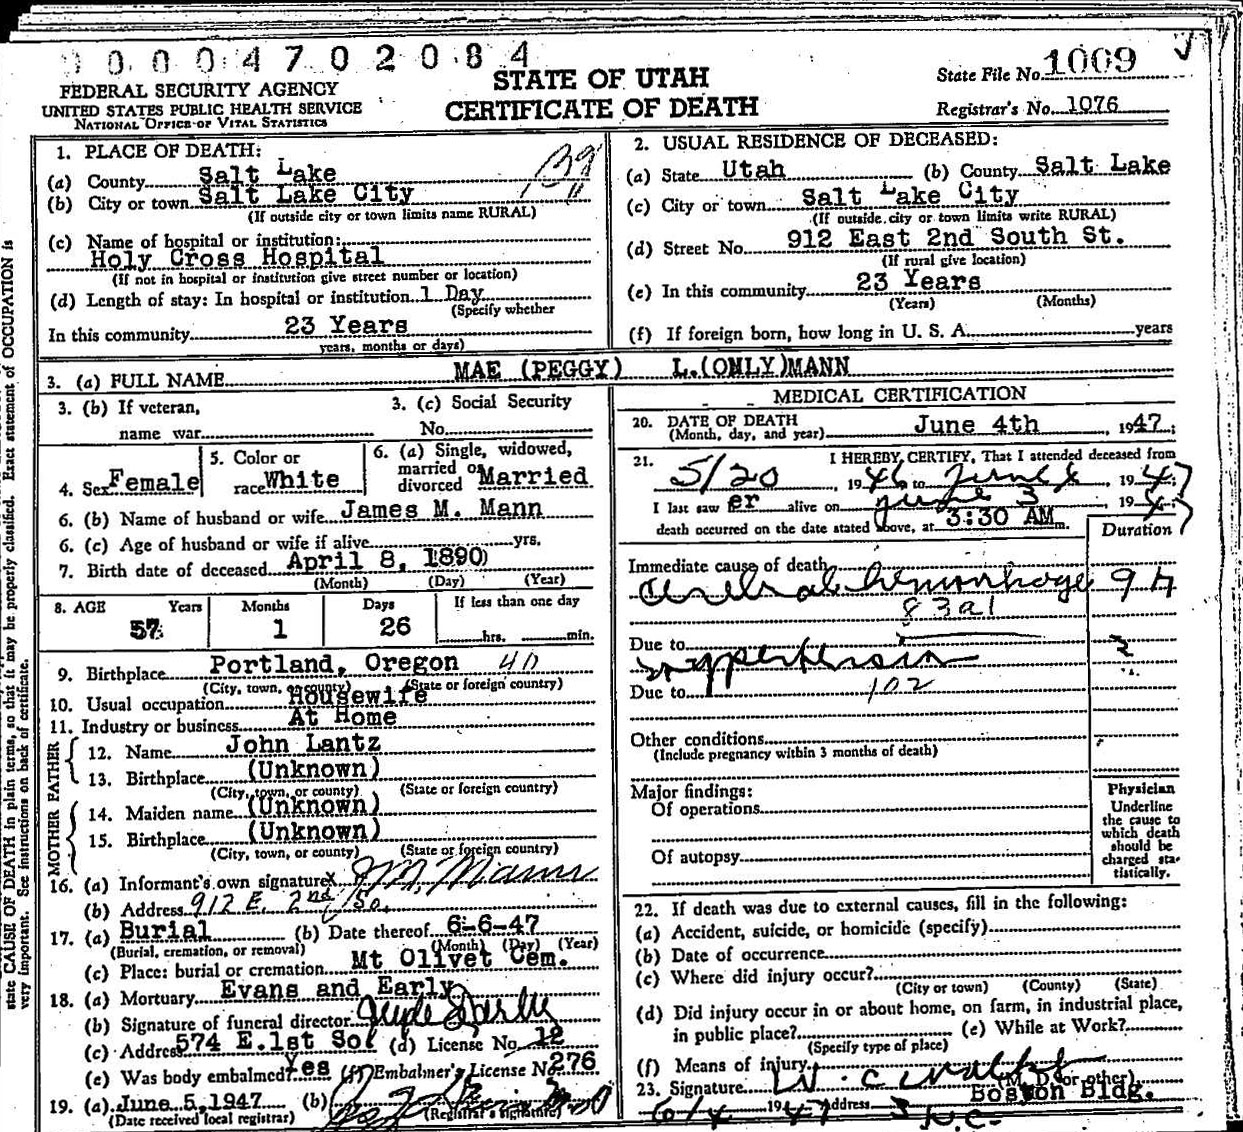 00004702084
FEDERAL SECURITY AGENCY
UNITED STATES PUBLIC HEALTH SERVICE
NATIONAL OFFICE OF VITAL STATISTICS
STATE OF UTAH
CERTIFICATE OF DEATH
State File No. 1009
Registrar's No. 1076
state CAUSE OF DEATH in plain terms, so that it may be properly classified. Exact statement of OCCUPATION is
very important. See instructions on back of certificate.
1. PLACE OF DEATH:
(a) County Salt Lake
(b) City or town Salt Lake City
(If outside city or town limits name RURAL)
(c) Name of hospital or institution:
Holy Cross Hospital
(If not in hospital or institution give street number or location)
(d) Length of stay: In hospital or institution 1 Day
(Specify whether
In this community 23 Years
years, months or days)
2. USUAL RESIDENCE OF DECEASED:
(a) State Utah (b) County Salt Lake
(c) City or town Salt Lake City
(If outside city or town limits write RURAL)
(d) Street No. 912 East 2nd South St.
(If rural give location)
(e) In this community 23 Years
(Years) (Months)
(f) If foreign born, how long in U. S. A. years
3. (a) FULL NAME MAE (PEGGY) L.(ONLY)MANN
3. (b) If veteran,
name war
3. (c) Social Security
No.
4. Sex Female
5. Color or
race White
6. (a) Single, widowed,
married or
divorced Married
6. (b) Name of husband or wife James M. Mann
6. (c) Age of husband or wife if alive yrs.
7. Birth date of deceased April 8, 1890
(Month) (Day) (Year)
8. AGE Years Months Days If less than one day
57 1 26 hrs. min.
9. Birthplace Portland, Oregon
(City, town, or county) (State or foreign country)
10. Usual occupation Housewife
11. Industry or business At Home
FATHER
12. Name John Lantz
13. Birthplace (Unknown)
(City, town, or county) (State or foreign country)
MOTHER
14. Maiden name (Unknown)
15. Birthplace (Unknown)
(City, town, or county) (State or foreign country)
16. (a) Informant's own signature x J M Mann
(b) Address 912 E. 2nd So.
17. (a) Burial (b) Date thereof 6-6-47
(Burial, cremation, or removal) (Month) (Day) (Year)
(c) Place: burial or cremation Mt Olivet Cem.
18. (a) Mortuary Evans and Early
(b) Signature of funeral director
(c) Address 574 E.1st So. (d) License No. 12
(e) Was body embalmed? Yes (f) Embalmer's License No 276
19. (a) June 5, 1947 (b)
(Date received local registrar) (Registrar's signature)
MEDICAL CERTIFICATION
20. DATE OF DEATH
(Month, day, and year) June 4th, 1947;
21. I HEREBY CERTIFY, That I attended deceased from
5/20, 1946 to June 4, 1947
I last saw er alive on June 3, 1947;
death occurred on the date stated above, at 3:30 AM m.
Duration
Immediate cause of death
Cerebral hemorrhage 9 h
83a1
Due to
Hypertension
Due to 102
Other conditions
(Include pregnancy within 3 months of death)
Major findings:
Of operations
Of autopsy
Physician
Underline
the cause to
which death
should be
charged sta-
tistically.
22. If death was due to external causes, fill in the following:
(a) Accident, suicide, or homicide (specify)
(b) Date of occurrence
(c) Where did injury occur?
(City or town) (County) (State)
(d) Did injury occur in or about home, on farm, in industrial place,
in public place? (e) While at Work?
(Specify type of place)
(f) Means of injury
23. Signature W. C.
(M. D. or other)
6/4 1947 Address Boston Bldg.